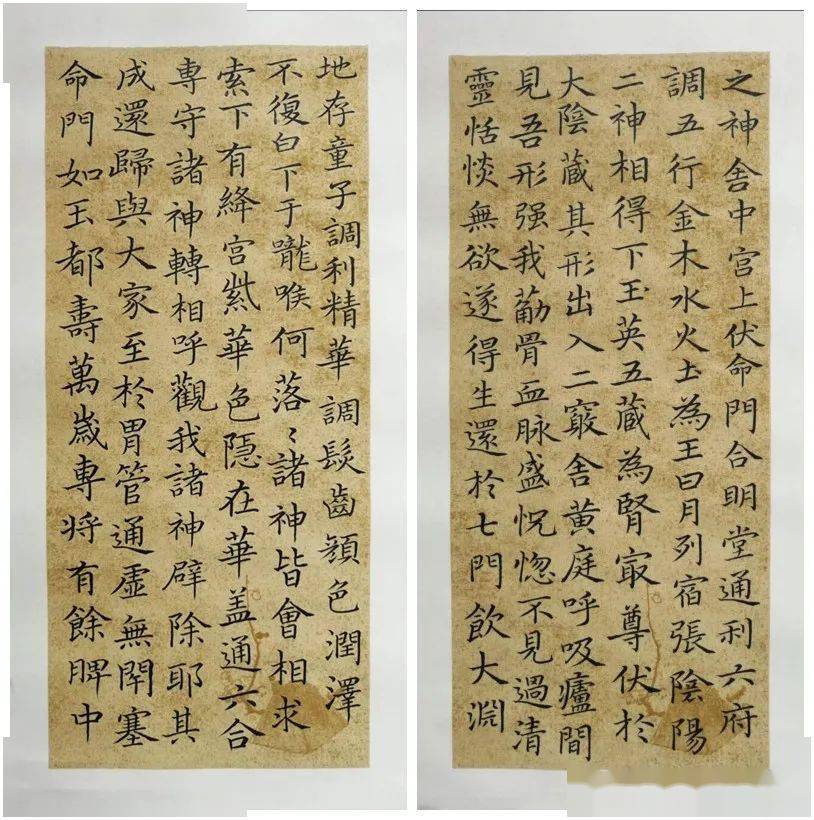 地存童子調利精華調髮齒顏色潤澤
不復白下于嚨喉何落〻諸神皆會相求
索下有絳宮紫華色隱在華盖通六合
專守諸神轉相呼觀我諸神辟除耶其
成還歸與大家至於胃管通虛無閉塞
命門如玉都壽萬歲專將有餘脾中
之神舍中宮上伏命門合明堂通利六府
調五行金木水火土為王日月列宿張陰陽
二神相得下玉英五藏為腎冣尊伏於
大陰藏其形出入二竅舍黄庭呼吸廬間
見吾形强我筋骨血脉盛怳惚不見過清
靈恬惔無欲遂得生還於七門飲大淵